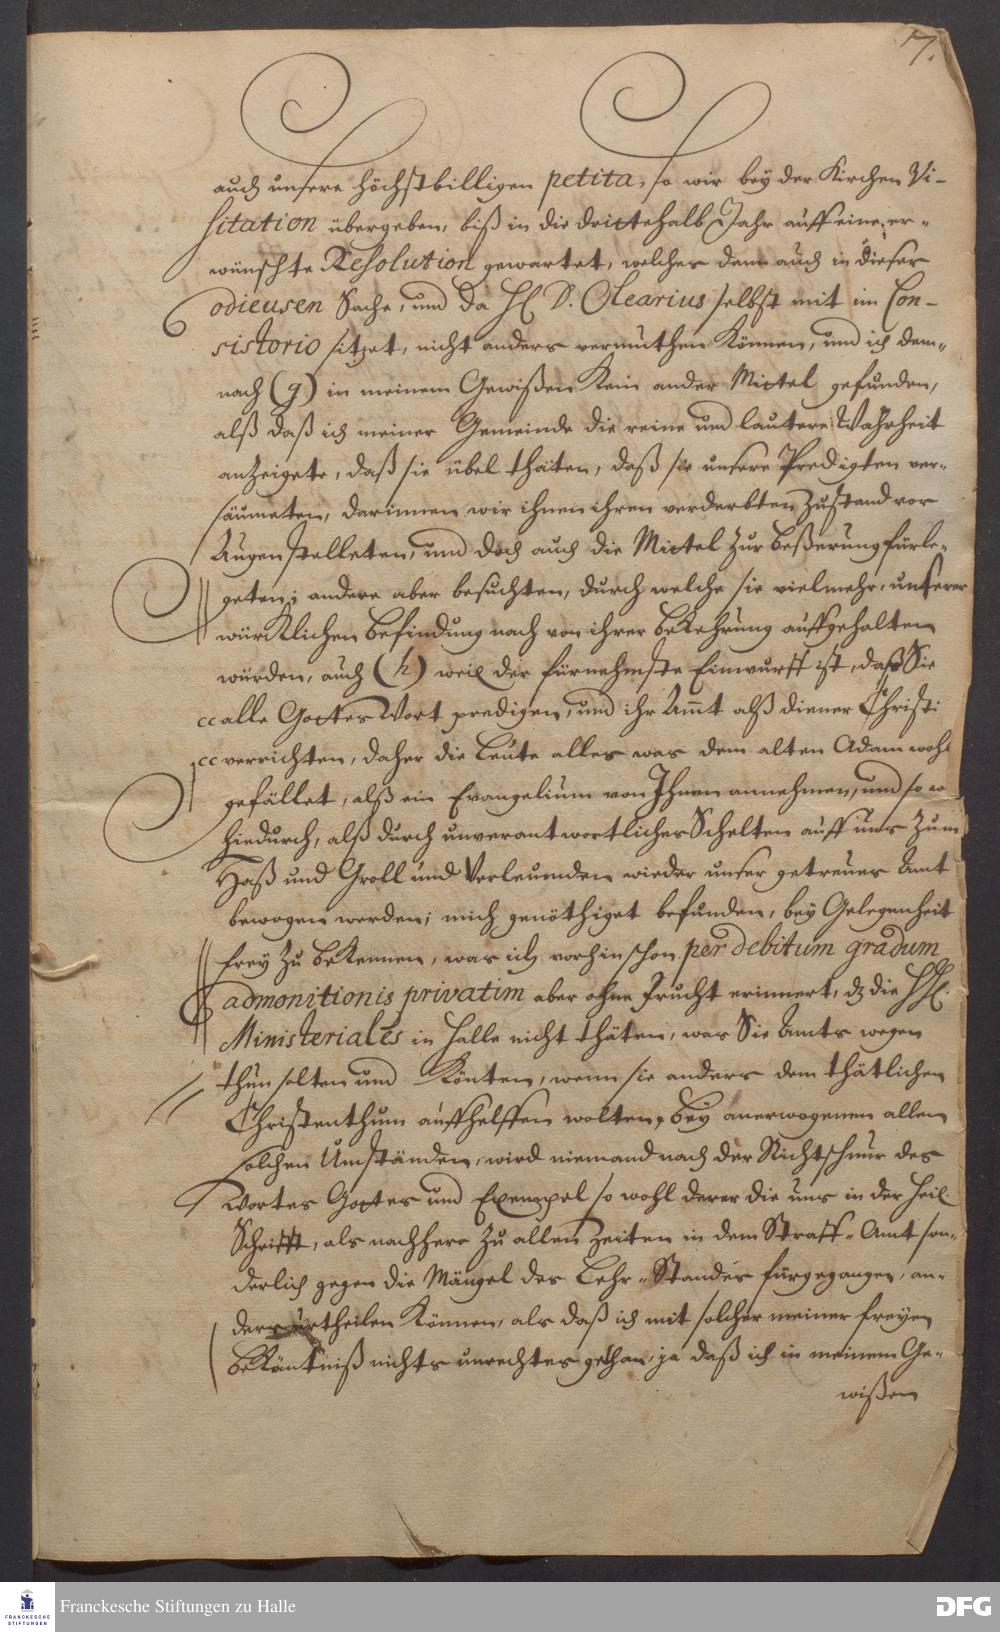 7.
auch unsere höchstbilligen petita, so wir bey der Kirchen Vi-
sitation übergeben, biß in die drittehalb Jahr auff eine er-
wünschte Resolution gewartet, welches dann auch in dieser
odieusen Sache, und da H. D. Olearius selbst mit im Con-
sistorio sitzet, nicht anders vermuthen können, und ich dem-
nach (g) in meinem Gewißen kein ander Mittel gefunden,
alß daß ich meiner Gemeinde die reine und lautere Wahrheit
anzeigete, daß sie übel thäten, daß sie unsere Predigten ver-
säumeten, darinnen wir ihnen ihren verderbten Zustand vor
Augen stelleten, und doch auch die Mittel zur Beßerung fürle-
geten; andere aber besuchten, durch welche sie vielmehr, unserer
würcklichen Befindung nach von ihrer Bekehrung auffgehalten
würden, auch (h) weil der fürnehmste Einwurff ist, daß Sie
cc alle Gottes Wort predigen, und ihr Ammt alß diener Christi
cc verrichten, daher die Leute alles was dem alten Adam wohl
gefället, alß ein Evangelium von Ihnen annehmen, und so wo
hiedurch, alß durch unverantwortliches Schelten auff uns zum
Haß und Groll und Verleumden wieder unser getreues Amt
bewogen werden; mich genöthiget befunden, bey Gelegenheit
frey zu bekennen, was ich vorhin schon per debitum gradum
admonitionis privatim aber ohne Frucht erinnert, dz die HH.
Ministeriales in Halle nicht thäten, was Sie Amts wegen
thun solten und könten, wenn sie anders dem thätlichen
Christenthum auffhelffen wolten, Bey anerwogenen allen
solchen Umständen, wird niemand nach der Richtschnur des
Wortes Gottes und Exempel so wohl derer die uns in der Heil.
Schrifft, als nachhero zu allen Zeiten in dem Straff-Amt son-
derlich gegen die Mängel des Lehr-Standes fürgegangen, an-
ders urtheilen können, als daß ich mit solcher meiner freyen
Bekäntniß nichts unrechtes gethan, ja daß ich in meinem Ge-
wißen
Franckesche Stiftungen zu Halle
FRANCKESCHE STIFTUNGEN
DFG